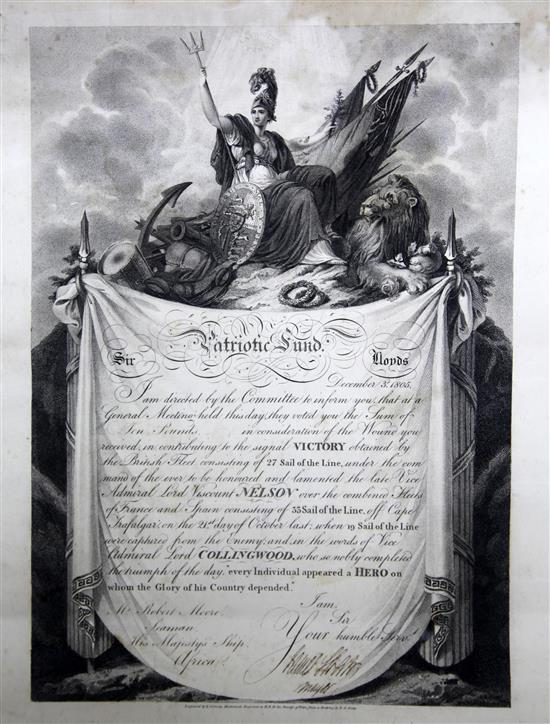 Patriotic Fund.
Sir Lloyds
December 3d. 1805.
I am directed by the Committee to inform you, that at a
General Meeting held this day, they voted you the Sum of
Ten Pounds in consideration of the Wound you
received, in contributing to the signal VICTORY obtained by
the British Fleet consisting of 27 Sail of the Line, under the com
mand of the ever to be honoured and lamented the late Vice
Admiral Lord Viscount NELSON over the combined Fleets
of France and Spain consisting of 33 Sail of the Line, off Cape
Trafalgar; on the 21st day of October last; when 19 Sail of the Line
were captured from the Enemy; and, in the words of Vice
Admiral Lord COLLINGWOOD, who so nobly completed
the triumph of the day, "every Individual appeared a HERO on
whom the Glory of his Country depended."
I am,
Mr. Robert Moore Sir
Seaman Your humble Serv.
His Majesty's Ship
Africa